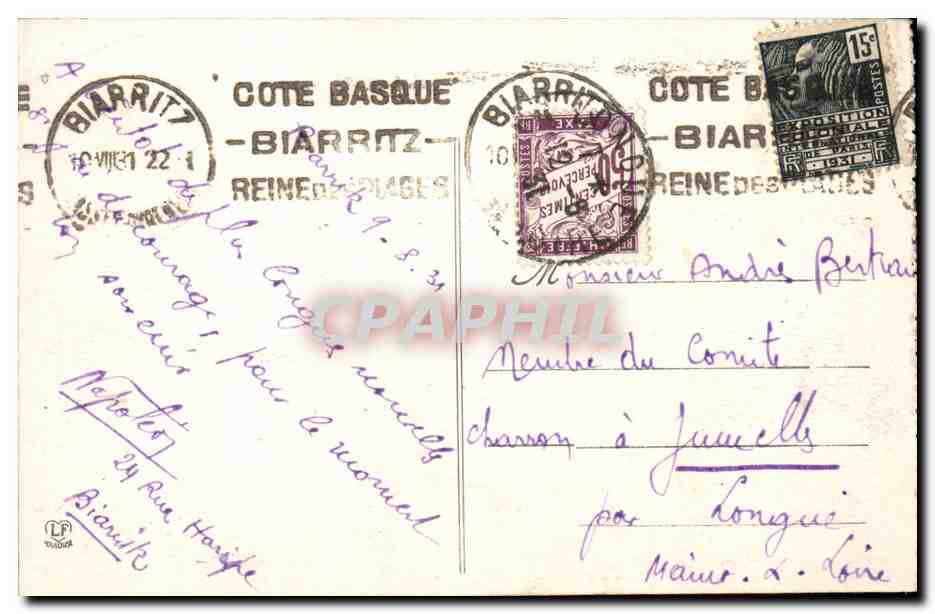 BIARRITZ
10 VIII 31 22-1
COTE BASQUE
-BIARRITZ-
REINE DES PLAGES
BIARRITZ
COTE BAS
BIAR
REINE DES PLAGES
15c
POSTES
EXPOSITION
COLONIALE
INTERNATIONALE
DE PARIS
1931
60
CENTIMES
A PERCEVOIR
POSTES
TAXE
CPAPHIL
Biarritz 9.8.31
A
de plus longues nouvelles
du courage, pour le moment
souvenir
Napoléon
24 Rue
Biarritz
Monsieur André Bertrau
Membre du Comité
charron à Jumelles
par Longué
Maine-&-Loire
LF
TOULOUSE